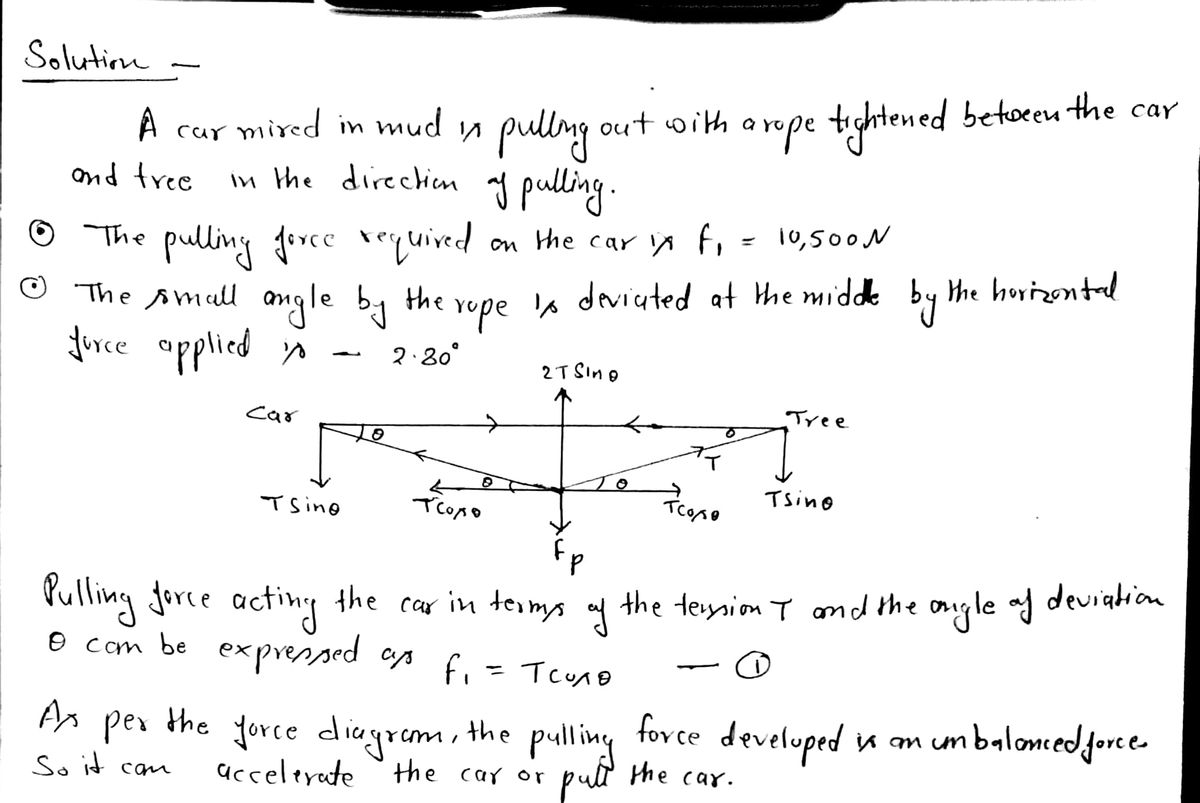 Solution -
A car mired in mud is pulling out with a rope tightened between the car
and tree in the direction of pulling.
⊙ The pulling force required on the car is f₁ = 10,500 N
⊙ The small angle by the rope is deviated at the middle by the horizontal
force applied is - 2.80°
2T Sin θ
Car
Tree
θ
θ
T
θ
θ
T Sin θ
T cos θ
T cos θ
T Sin θ
Fp
Pulling force acting the car in terms of the tension T and the angle of deviation
θ can be expressed as f₁ = T cos θ — ①
As per the force diagram, the pulling force developed is an unbalanced force.
So it can accelerate the car or pull the car.